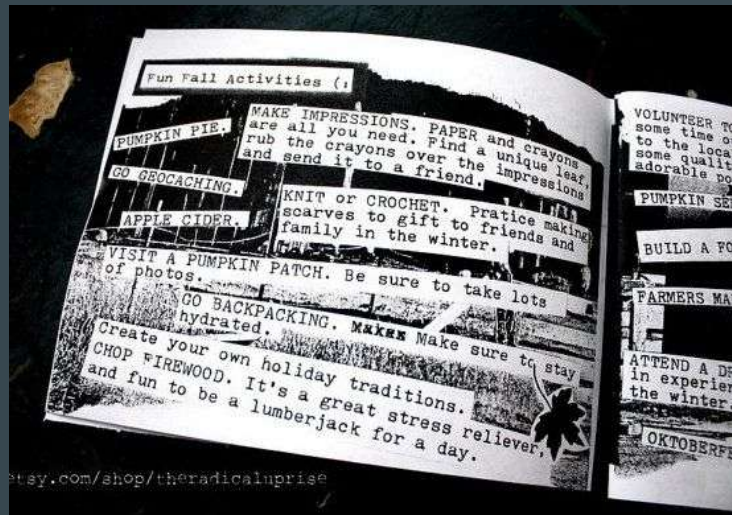 Fun Fall Activities (:
PUMPKIN PIE.
MAKE IMPRESSIONS. PAPER and crayons
are all you need. Find a unique leaf,
rub the crayons over the impressions
and send it to a friend.
GO GEOCACHING.
KNIT or CROCHET. Pratice making
scarves to gift to friends and
family in the winter.
APPLE CIDER.
VISIT A PUMPKIN PATCH. Be sure to take lots
of photos.
GO BACKPACKING. Make sure to stay
hydrated.
Create your own holiday traditions.
CHOP FIREWOOD. It's a great stress reliever,
and fun to be a lumberjack for a day.
VOLUNTEER
some time
to the
some
adorable
PUMPKIN
BUILD A
FARMERS
ATTEND A
in
the winter.
etsy.com/shop/theradicaluprise